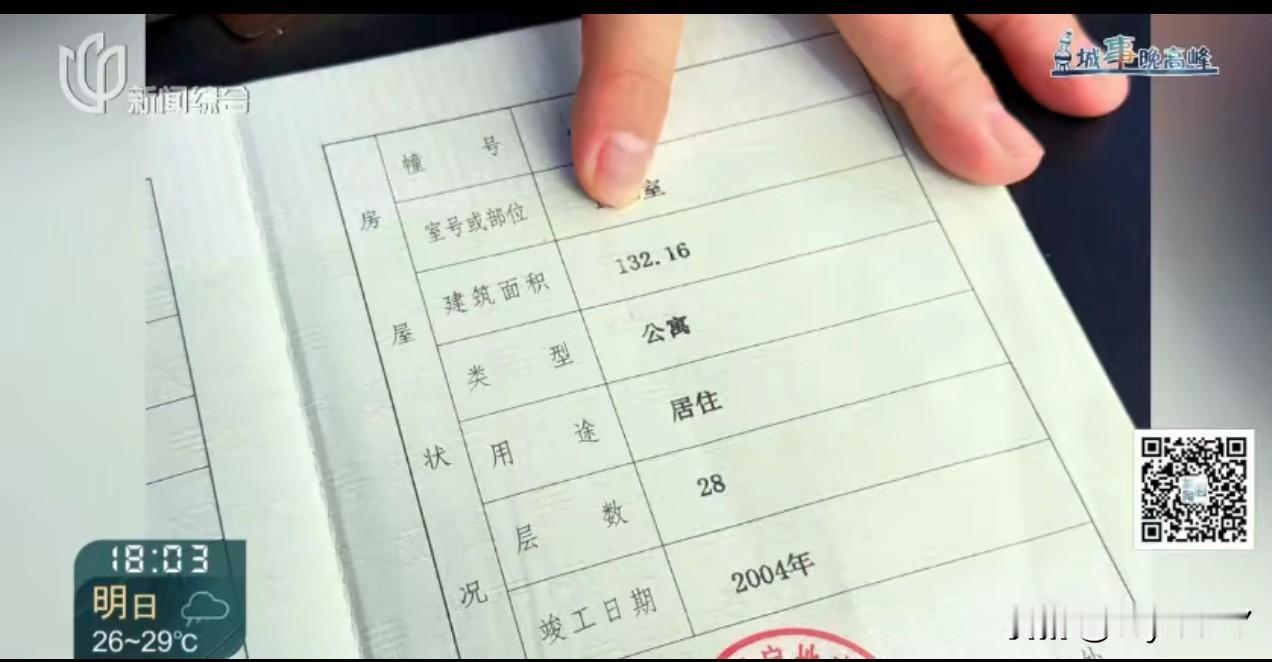 新闻综合
城事晚高峰
房屋状况
幢号
室号或部位 室
建筑面积 132.16
类型 公寓
用途 居住
层数 28
竣工日期 2004年
18:03
明日
26~29℃